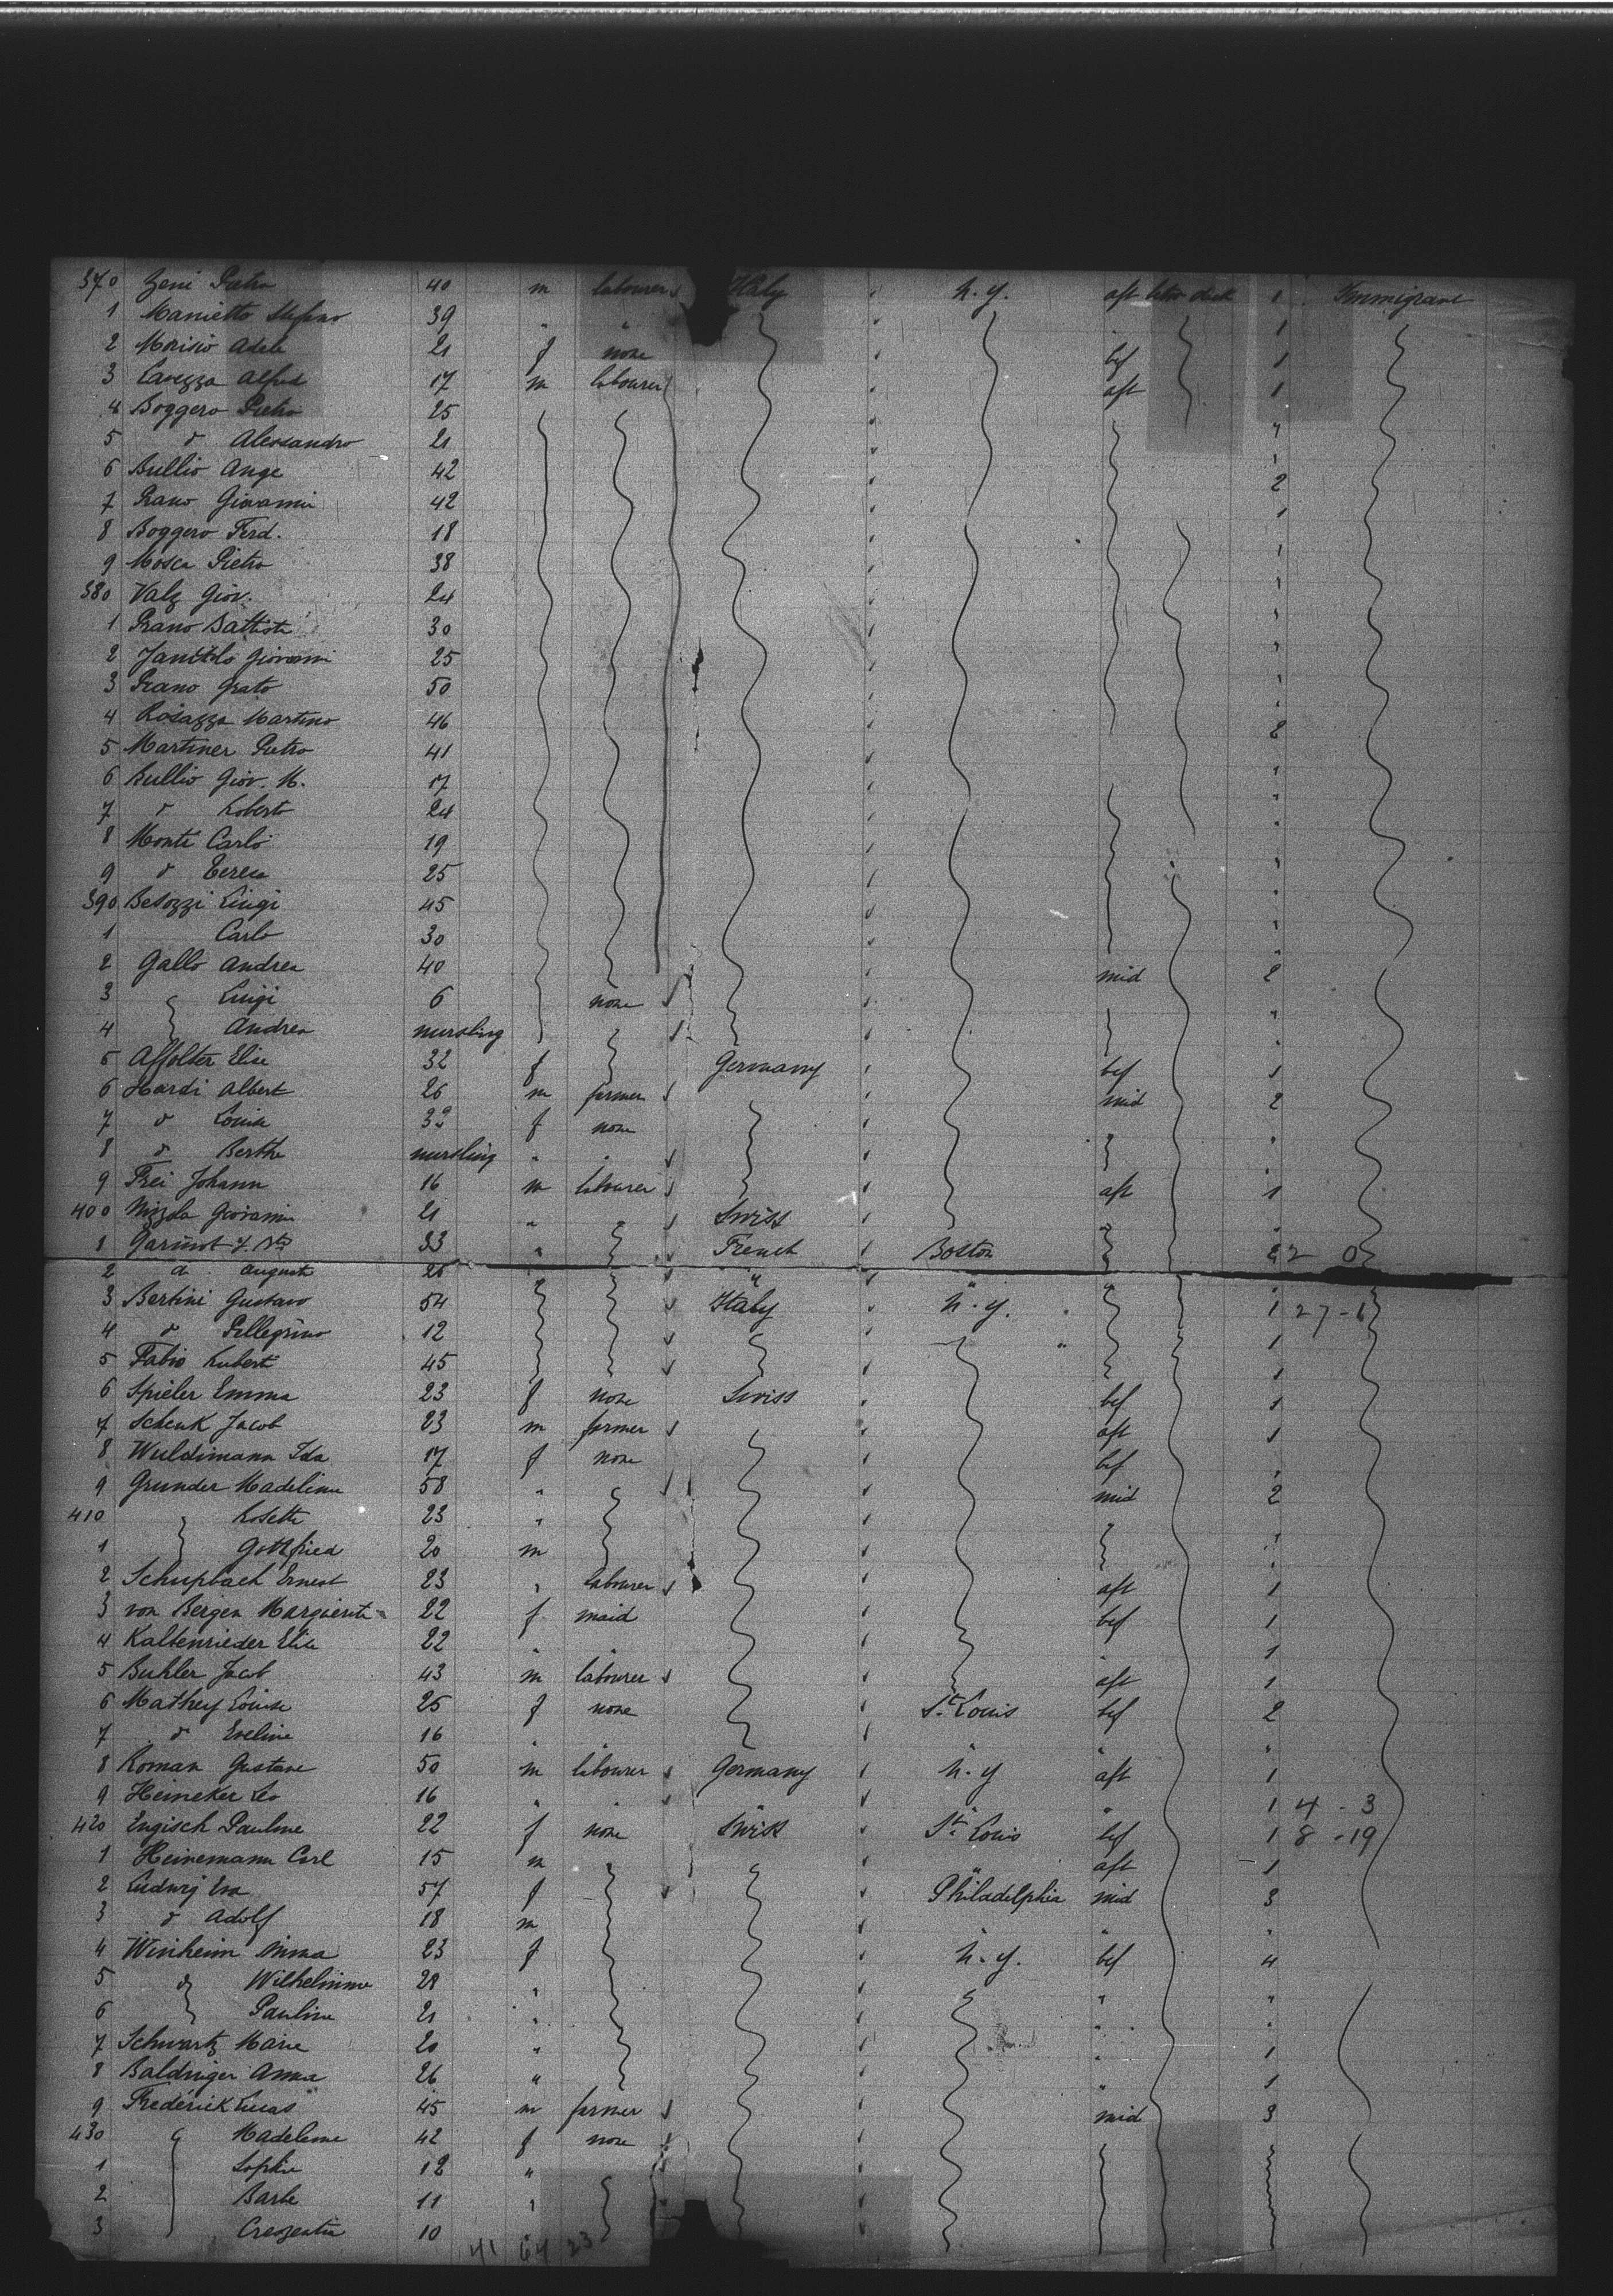 370 Zeni Pietro 40 m labourer Italy N.Y. aft betw deck 1 Immigrant
1 Manietto Stefano 39 " " 1
2 Morisio Adele 21 f none bef 1
3 Cavezza Alfred 17 m labourer aft 1
4 Boggero Pietro 25 "
5 d Alessandro 21 "
6 Bullio Ange 42 2
7 Prano Giovanni 42 1
8 Boggero Ferd. 18 1
9 Mosca Pietro 38 "
380 Valz Giov. 24 "
1 Prano Battista 30 "
2 Janttolo Giovanni 25 "
3 Prano Grato 50 "
4 Rosazza Martino 46 2
5 Martiner Pietro 41 "
6 Bullio Giov. M. 17 "
7 d Roberto 24 "
8 Monti Carlo 19 "
9 d Teresa 25 "
390 Besozzi Luigi 45 "
1 Carlo 30 "
2 Gallo Andrea 40 mid 2
3 Luigi 6 none "
4 Andrea nursling "
5 Affolter Elise 32 f Germany bef 1
6 Hardi Albert 26 m farmer mid 2
7 d Louise 32 f none "
8 d Berthe nursling " " "
9 Frei Johann 16 m labourer aft 1
400 Nizzola Giovanni 21 " Swiss "
1 Garinot 33 " French Boston 2 2 0
2 d August 26 "
3 Bertini Gustavo 54 Italy N.Y. 1 27-6
4 d Pellegrino 12 " 1
5 Fabio Hubert 45 1
6 Spieler Emma 23 f none Swiss bef 1
7 Schenk Jacob 23 m farmer aft 1
8 Wuldimann Ida 17 f none bef "
9 Grunder Madeleine 58 " mid 2
410 Rosette 23 " "
1 Gottfried 20 m "
2 Schupbach Ernest 23 " labourer aft 1
3 von Bergen Marguerite 22 f maid bef 1
4 Kaltenrieder Elise 22 " " " 1
5 Buhler Jacob 43 m labourer aft 1
6 Mathey Louise 25 f none St. Louis bef 2
7 d Eveline 16 " " " "
8 Roman Gustave 50 m labourer Germany N.Y aft 1
9 Heineker Leo 16 " " " " 1 4 - 3
420 Engisch Pauline 22 f none Swiss St. Louis bef 1 8 - 19
1 Heinemann Carl 15 m " aft 1
2 Ludwig Eva 57 f Philadelphia mid 3
3 d Adolf 18 m " "
4 Winheim Anna 23 f N.Y. bef 4
5 d Wilhelmine 28 " " "
6 Pauline 21 " " "
7 Schwartz Marie 20 " " 1
8 Baldinger Anna 26 " " 1
9 Frederick Lucas 45 m farmer mid 3
430 Madeleine 42 f none
1 Sophie 12 "
2 Barbe 11 "
3 Crezentia 10
41 64 23